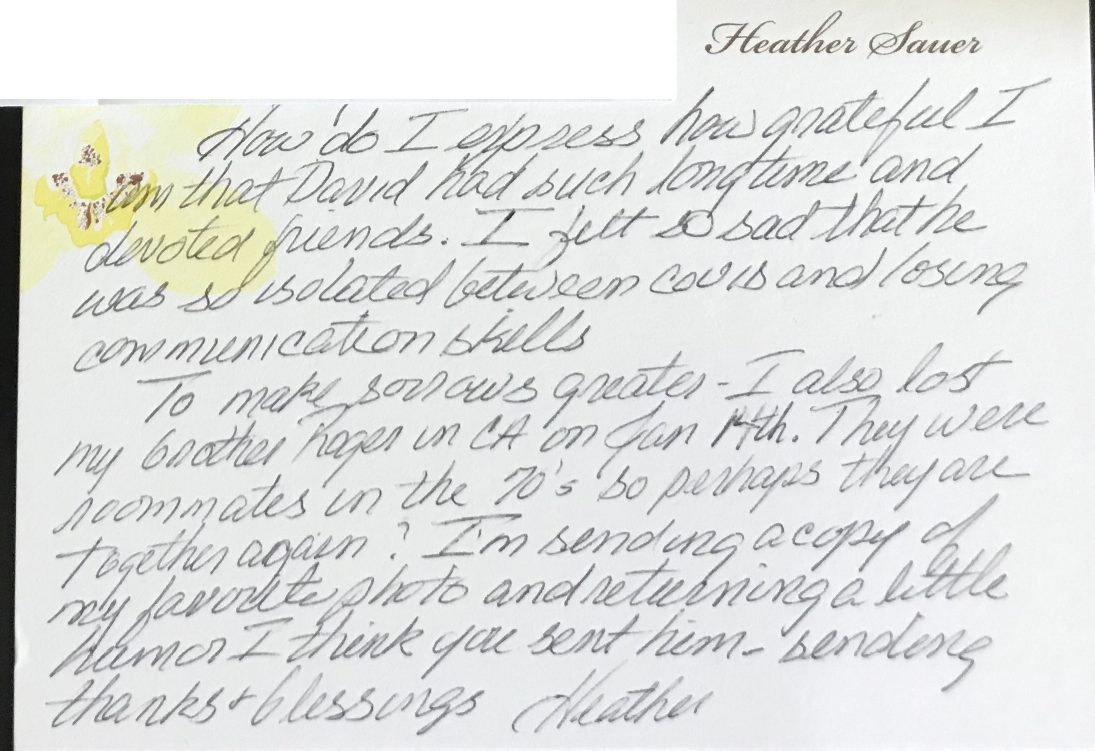 Heather Sauer
How do I express how grateful I
am that David had such longtime and
devoted friends. I felt so sad that he
was so isolated between covid and losing
communication skills
To make sorrows greater - I also lost
my brother Roger in CA on Jan 14th. They were
roommates in the 70's so perhaps they are
together again? I'm sending a copy of
my favorite photo and returning a little
humor I think you sent him - sending
thanks + blessings Heather